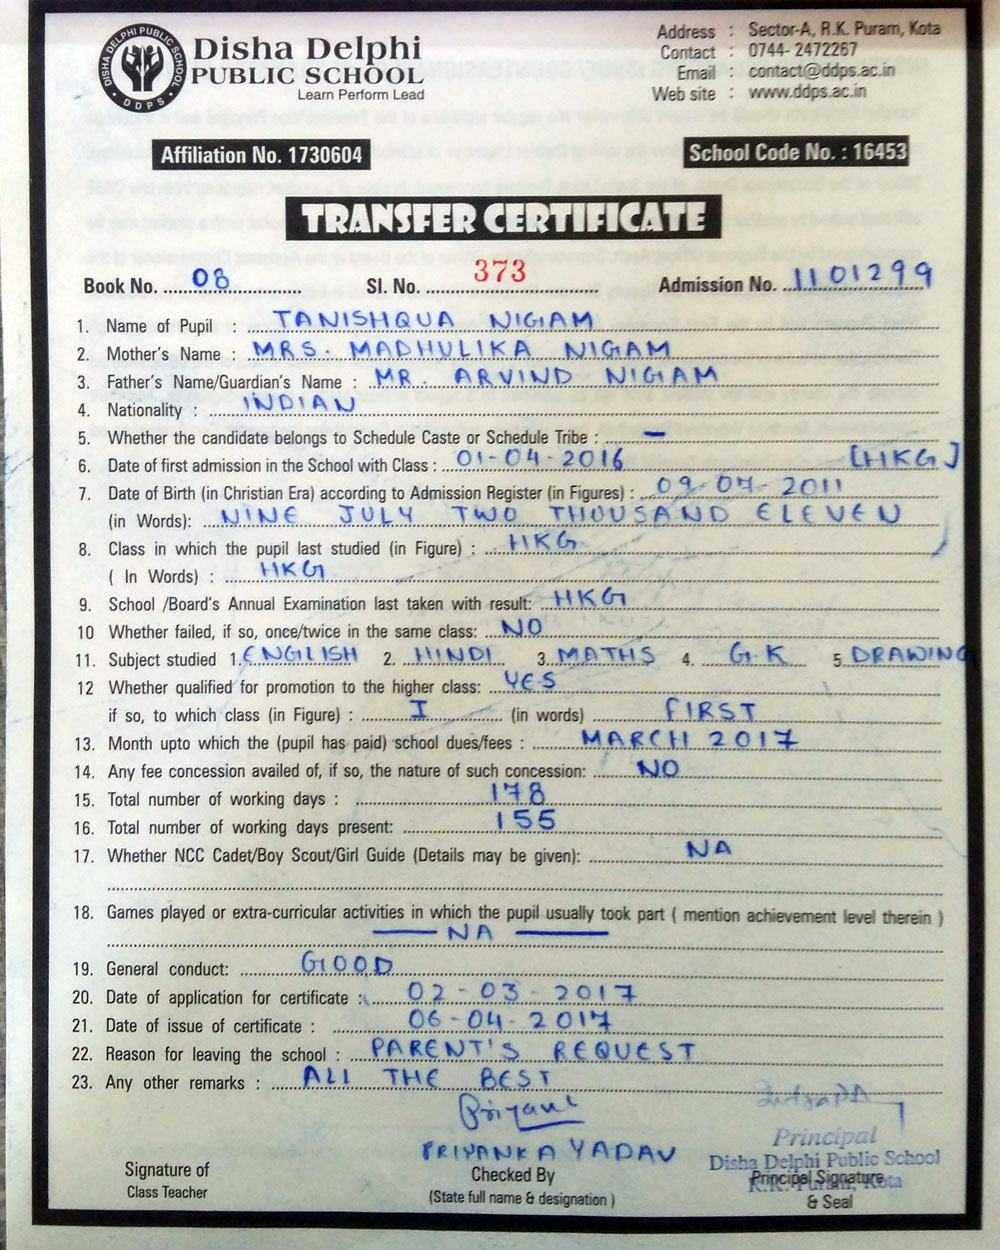 DISHA DELPHI PUBLIC SCHOOL
DDPS
Disha Delphi
PUBLIC SCHOOL
Learn Perform Lead
Address : Sector-A, R.K. Puram, Kota
Contact : 0744- 2472267
Email : contact@ddps.ac.in
Web site : www.ddps.ac.in
Affiliation No. 1730604
School Code No. : 16453
TRANSFER CERTIFICATE
Book No. 08 Sl. No. 373 Admission No. 1101299
1. Name of Pupil : TANISHQUA NIGAM
2. Mother's Name : MRS. MADHULIKA NIGAM
3. Father's Name/Guardian's Name : MR. ARVIND NIGAM
4. Nationality : INDIAN
5. Whether the candidate belongs to Schedule Caste or Schedule Tribe : –
6. Date of first admission in the School with Class : 01-04-2016 [HKG]
7. Date of Birth (in Christian Era) according to Admission Register (in Figures) : 09-07-2011
(in Words): NINE JULY TWO THOUSAND ELEVEN
8. Class in which the pupil last studied (in Figure) : HKG
( In Words) : HKG
9. School /Board's Annual Examination last taken with result: HKG
10 Whether failed, if so, once/twice in the same class: NO
11. Subject studied 1. ENGLISH 2. HINDI 3. MATHS 4. G.K 5. DRAWING
12 Whether qualified for promotion to the higher class: YES
if so, to which class (in Figure) : I (in words) FIRST
13. Month upto which the (pupil has paid) school dues/fees : MARCH 2017
14. Any fee concession availed of, if so, the nature of such concession: NO
15. Total number of working days : 178
16. Total number of working days present: 155
17. Whether NCC Cadet/Boy Scout/Girl Guide (Details may be given): NA
18. Games played or extra-curricular activities in which the pupil usually took part ( mention achievement level therein )
— NA —
19. General conduct: GOOD
20. Date of application for certificate : 02-03-2017
21. Date of issue of certificate : 06-04-2017
22. Reason for leaving the school : PARENT'S REQUEST
23. Any other remarks : ALL THE BEST
PRIYANKA YADAV
Principal
Disha Delphi Public School
R.K. Puram, Kota
Signature of
Class Teacher
Checked By
(State full name & designation )
Principal Signature
& Seal